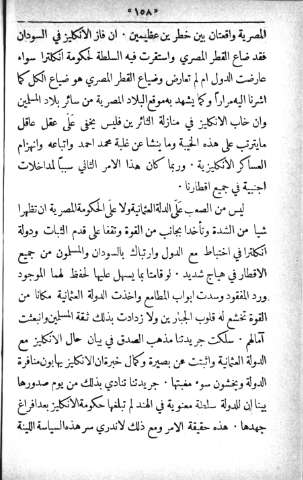 ﴿١٥٨﴾
المصرية واقعتان بين خطرين عظيمين . ان فاز الانكليز في السودان
فقد ضاع القطر المصري واستقرت فيه السلطة لحكومة انكلترا سواء
عارضت الدول ام لم تعارض وضياع القطر المصري هو ضياع الكل كما
اشرنا اليه مراراً وكما يشهد به موقع البلاد المصرية من سائر بلاد المسلمين
وان خاب الانكليز في منازلة الثائرين فليس يخفى على عقل عاقل
ما يترتب على هذه الخيبة وما ينشأ عن غلبة محمد احمد واتباعه وانهزام
العساكر الانكليزية . وربما كان هذا الامر الثاني سبباً لمداخلات
اجنبية في جميع اقطارنا .
ليس من الصعب على الدولة العثمانية ولا على الحكومة المصرية ان تظهرا
شيئا من الشدة وتأخذا بجانب من القوة وتقفا على قدم الثبات ودولة
انكلترا في اختباط مع الدول وارتباك بالسودان والمسلمون من جميع
الاقطار في هياج شديد . لو قامتا بما يسهل عليها لحفظ لهما الموجود
ورد المفقود وسدت ابواب المطامع واخذت الدولة العثمانية مكانا من
القوة تخشع له قلوب الجبارين ولازدادت بذلك ثقة المسلمين وانبعثت
آمالهم . سلكت جريدتنا مذهب الصدق في بيان حال الانكليز مع
الدولة العثمانية واثبتت عن بصيرة وكمال خبرة ان الانكليز يهابون منافرة
الدولة ويخشون سوء مغبتها . جريدتنا تنادي بذلك من يوم صدورها
بينا ان للدولة سلطة معنوية في الهند لم تبلغها حكومة الانكليز بعد افراغ
جهدها . هذه حقيقة الامر ومع ذلك لا ندري سر هذه السياسة اللينة